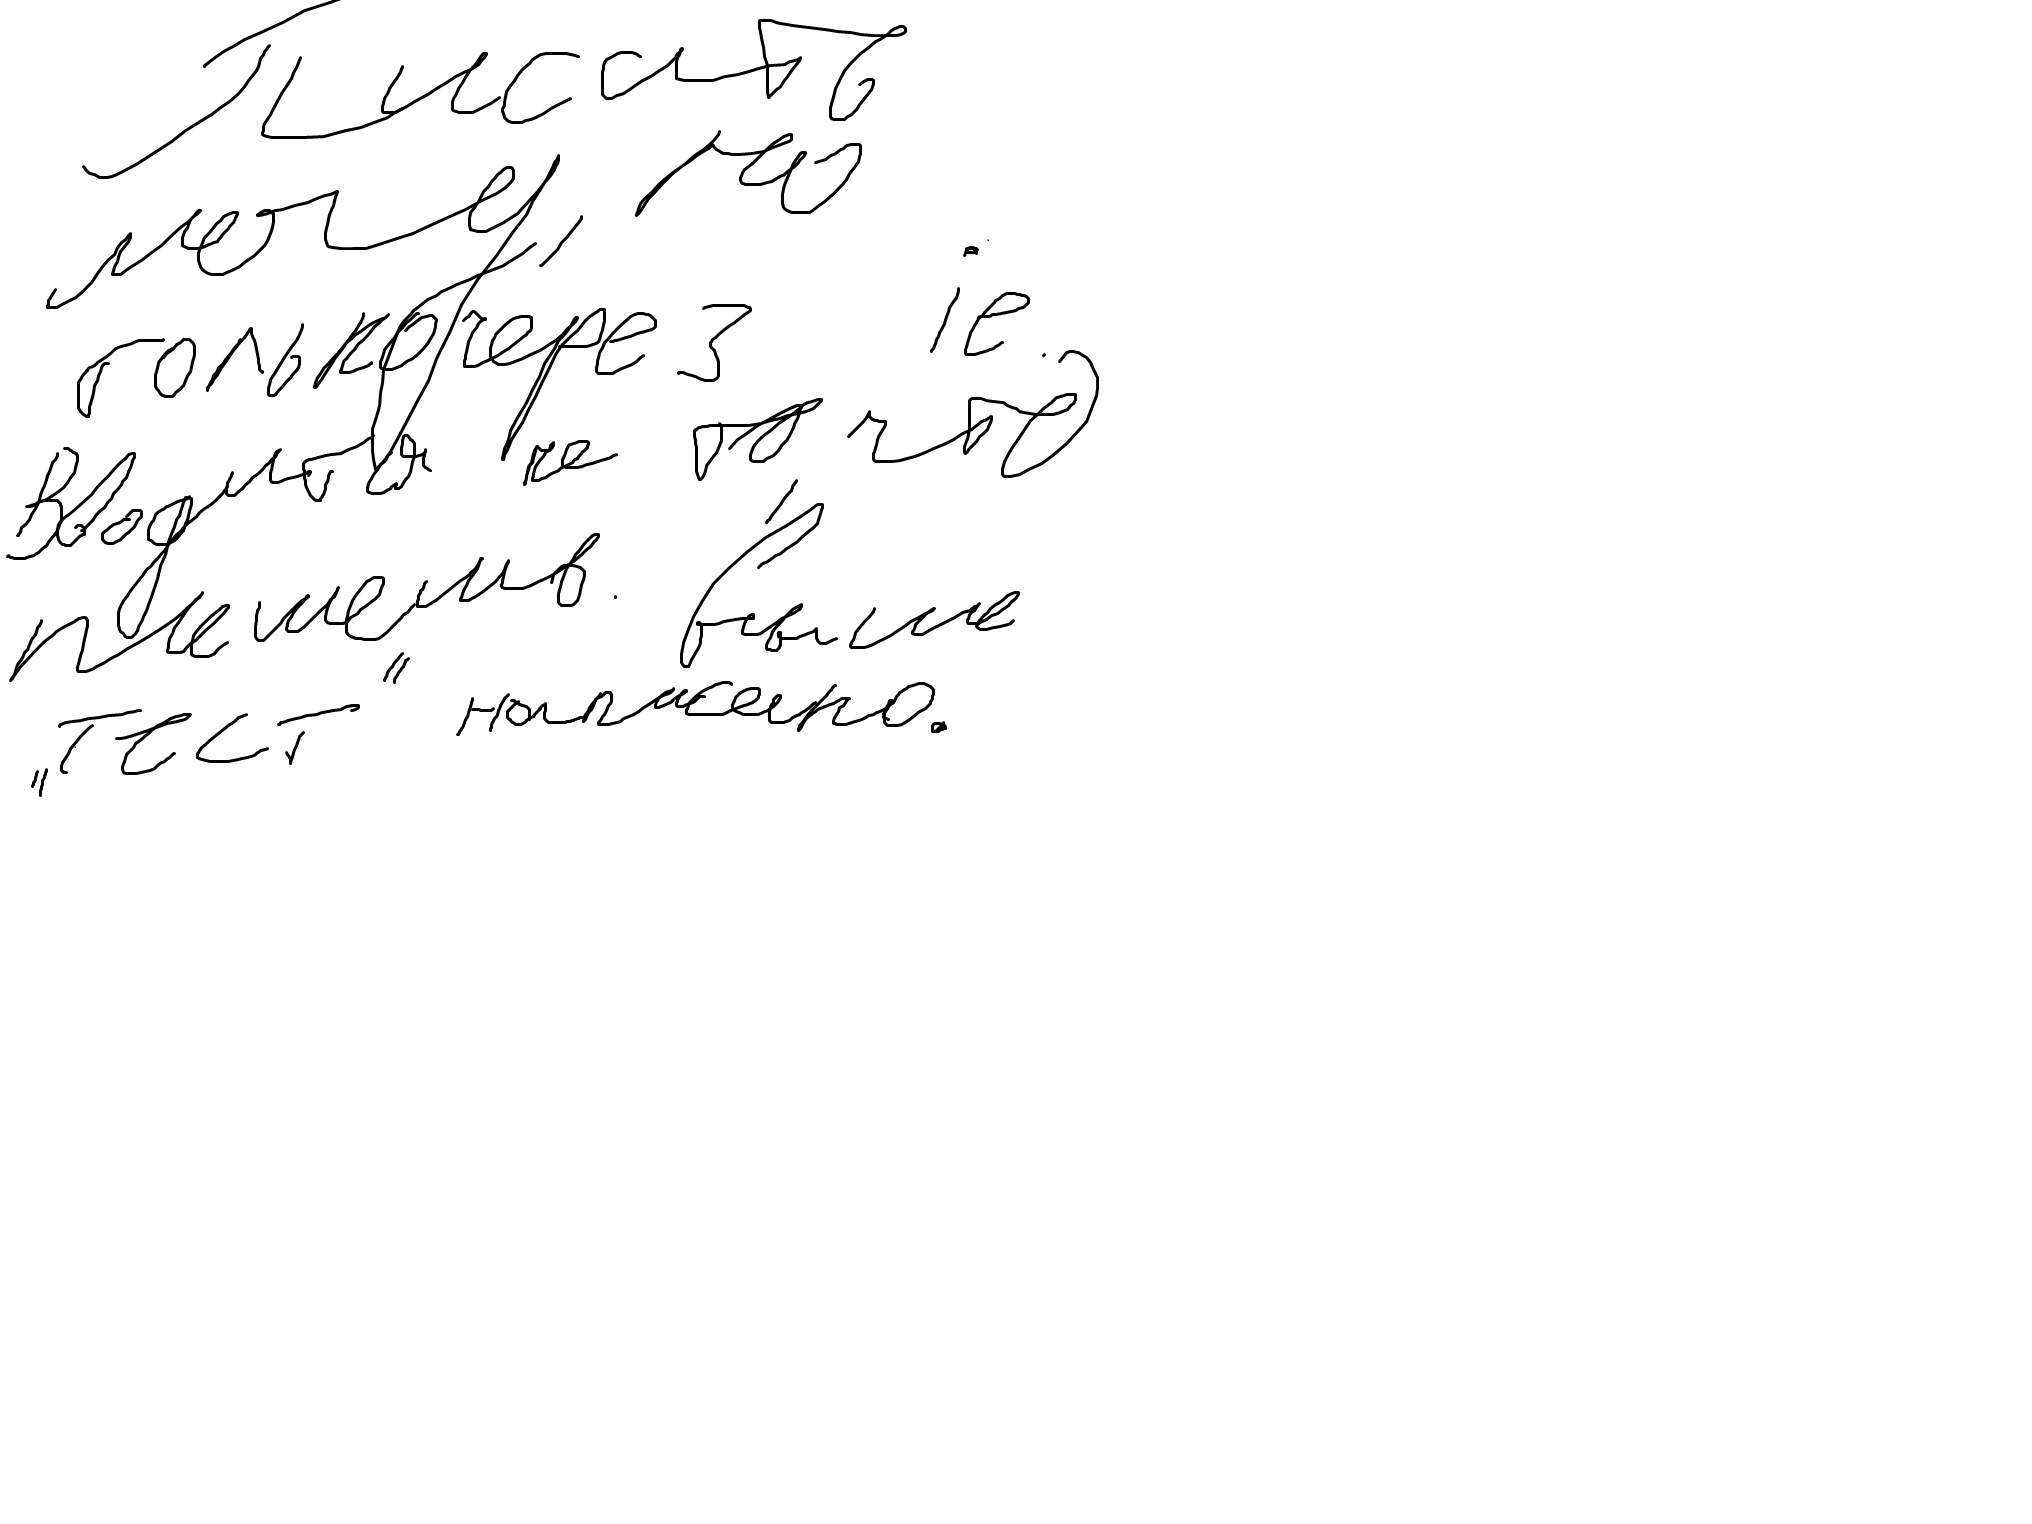 Писать
могу, но
только через ie.
Вводится не то что
пишешь. Выше
"ТЕСТ" написано.